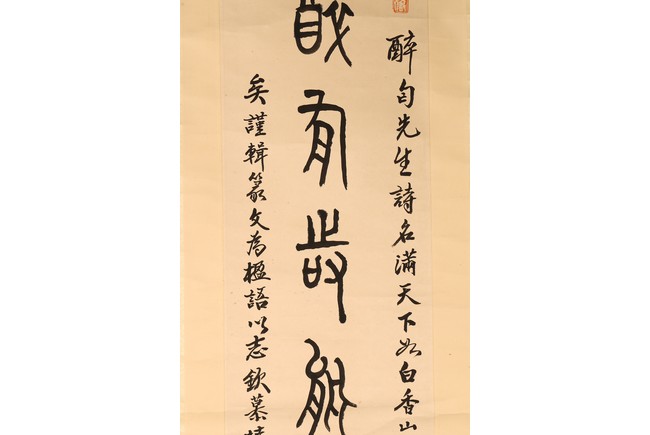 醉先生詩名滿天下如白香山
有能
矣謹輯篆文為楹語以志欽慕